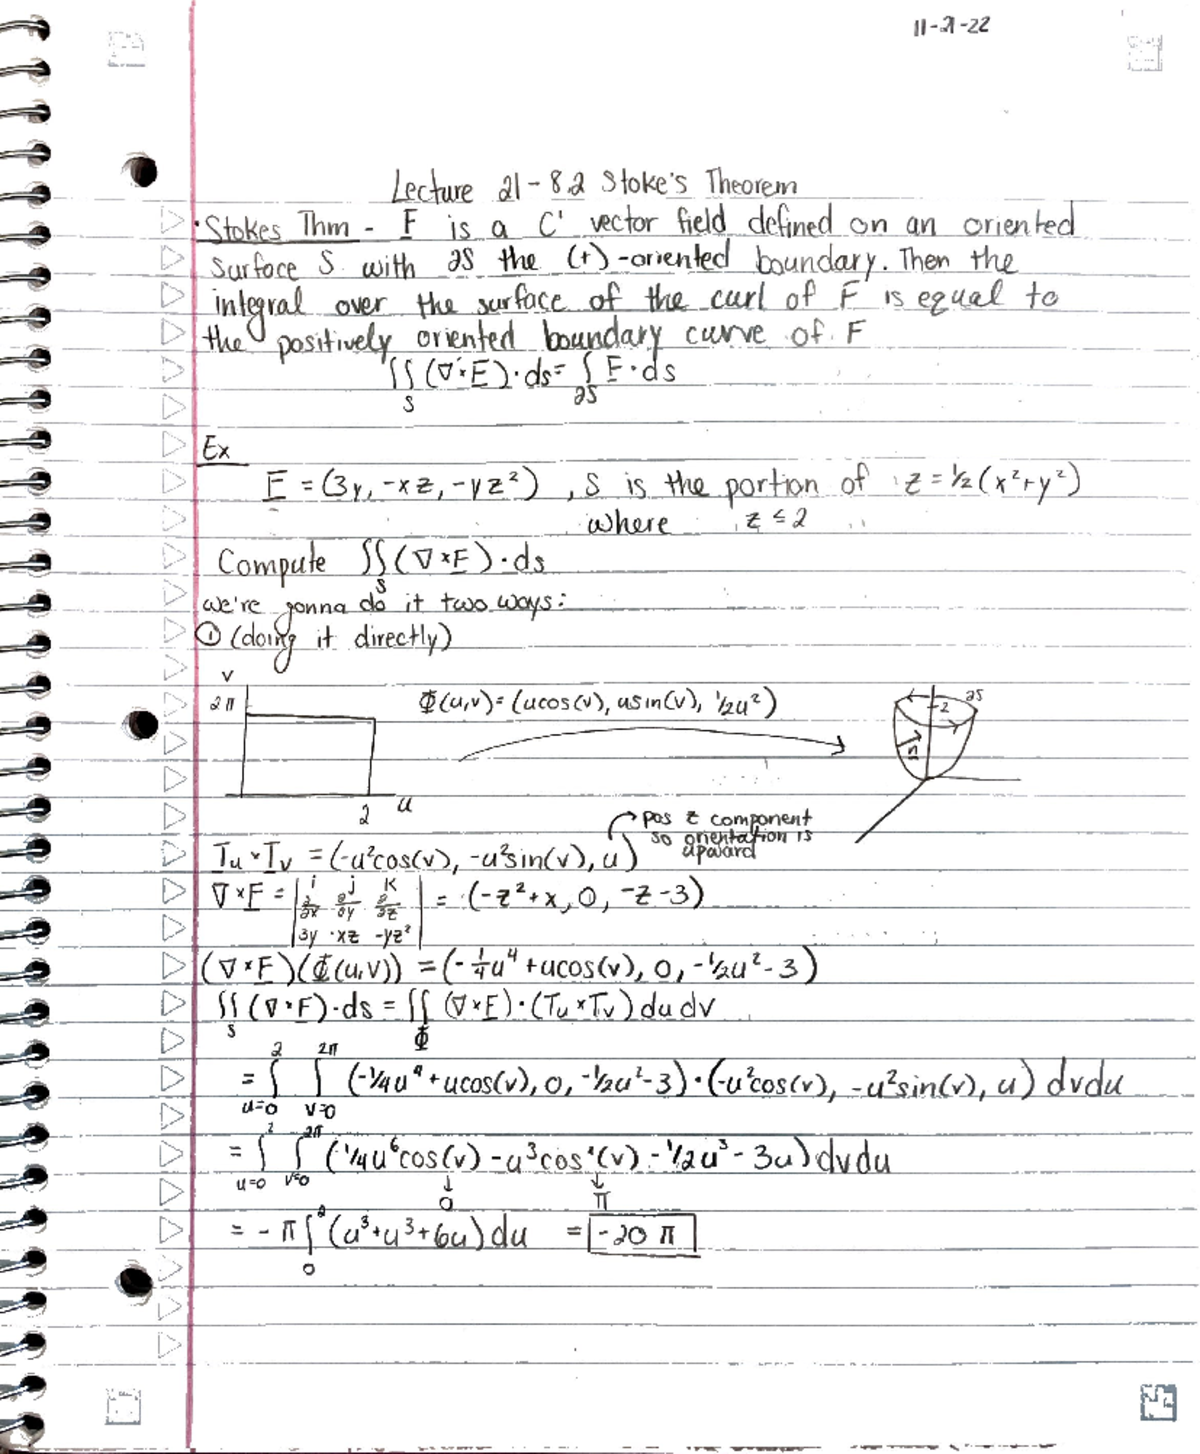 11-21-22
Lecture 21 - 8.2 Stoke's Theorem
• Stokes Thm - F is a C' vector field defined on an oriented
surface S with ∂S the (+)-oriented boundary. Then the
integral over the surface of the curl of F is equal to
the positively oriented boundary curve of F
∬_S (∇×F)·ds = ∫_∂S F·ds
Ex
F = (3y, -xz, -yz²) , S is the portion of z = ½(x²+y²)
where z ≤ 2
Compute ∬_S (∇×F)·ds
we're gonna do it two ways:
① (doing it directly)
v
2π
Φ(u,v) = (ucos(v), usin(v), ½u²)
∂S
2
n
2 u
pos z component
so orientation is
upward
Tu × Tv = (-u²cos(v), -u²sin(v), u)
∇×F = | i j k | = (-z²+x, 0, -z-3)
∂/∂x ∂/∂y ∂/∂z
3y -xz -yz²
(∇×F)(Φ(u,v)) = (-¼u⁴ + ucos(v), 0, -½u² - 3)
∬_S (∇×F)·ds = ∬_Φ (∇×F)·(Tu×Tv) du dv
= ∫_{u=0}^{2} ∫_{v=0}^{2π} (-¼u⁴ + ucos(v), 0, -½u²-3)·(-u²cos(v), -u²sin(v), u) dvdu
= ∫_{u=0}^{2} ∫_{v=0}^{2π} (¼u⁶cos(v) - u³cos²(v) - ½u³ - 3u) dvdu
↓ 0 ↓ π
= -π ∫_0^2 (u³+u³+6u) du = -20 π